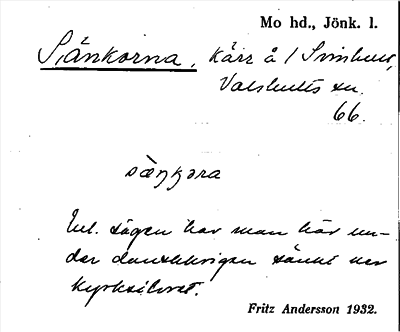 Mo hd., Jönk. l.
Sänkorna, Kärr å / Svinhult,
Valshults sn.
66.
sæŋkəra
Enl. sägen har man här un-
der danskkrigen sänkt ner
kyrksilvret.
Fritz Andersson 1932.